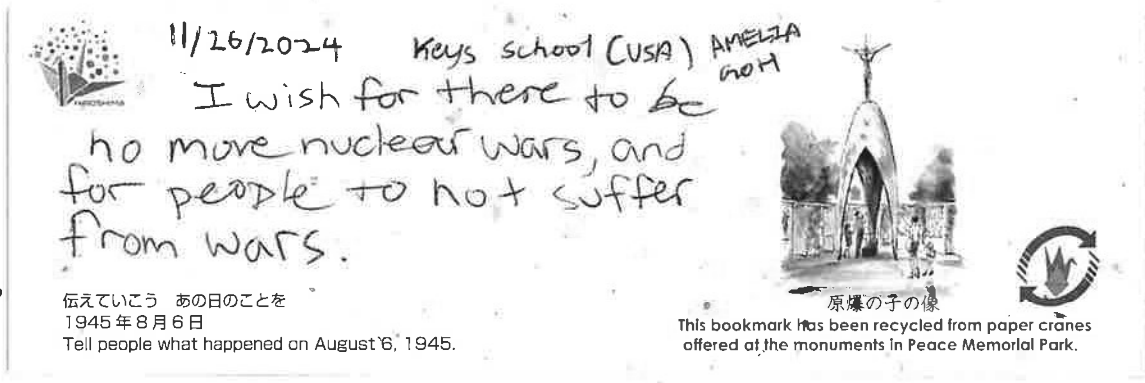 11/26/2024 Keys school (USA) AMELIA GOH
HIROSHIMA
I wish for there to be
no more nuclear wars, and
for people to not suffer
from wars.
伝えていこう あの日のことを
1945年8月6日
Tell people what happened on August 6, 1945.
原爆の子の像
This bookmark has been recycled from paper cranes
offered at the monuments in Peace Memorial Park.